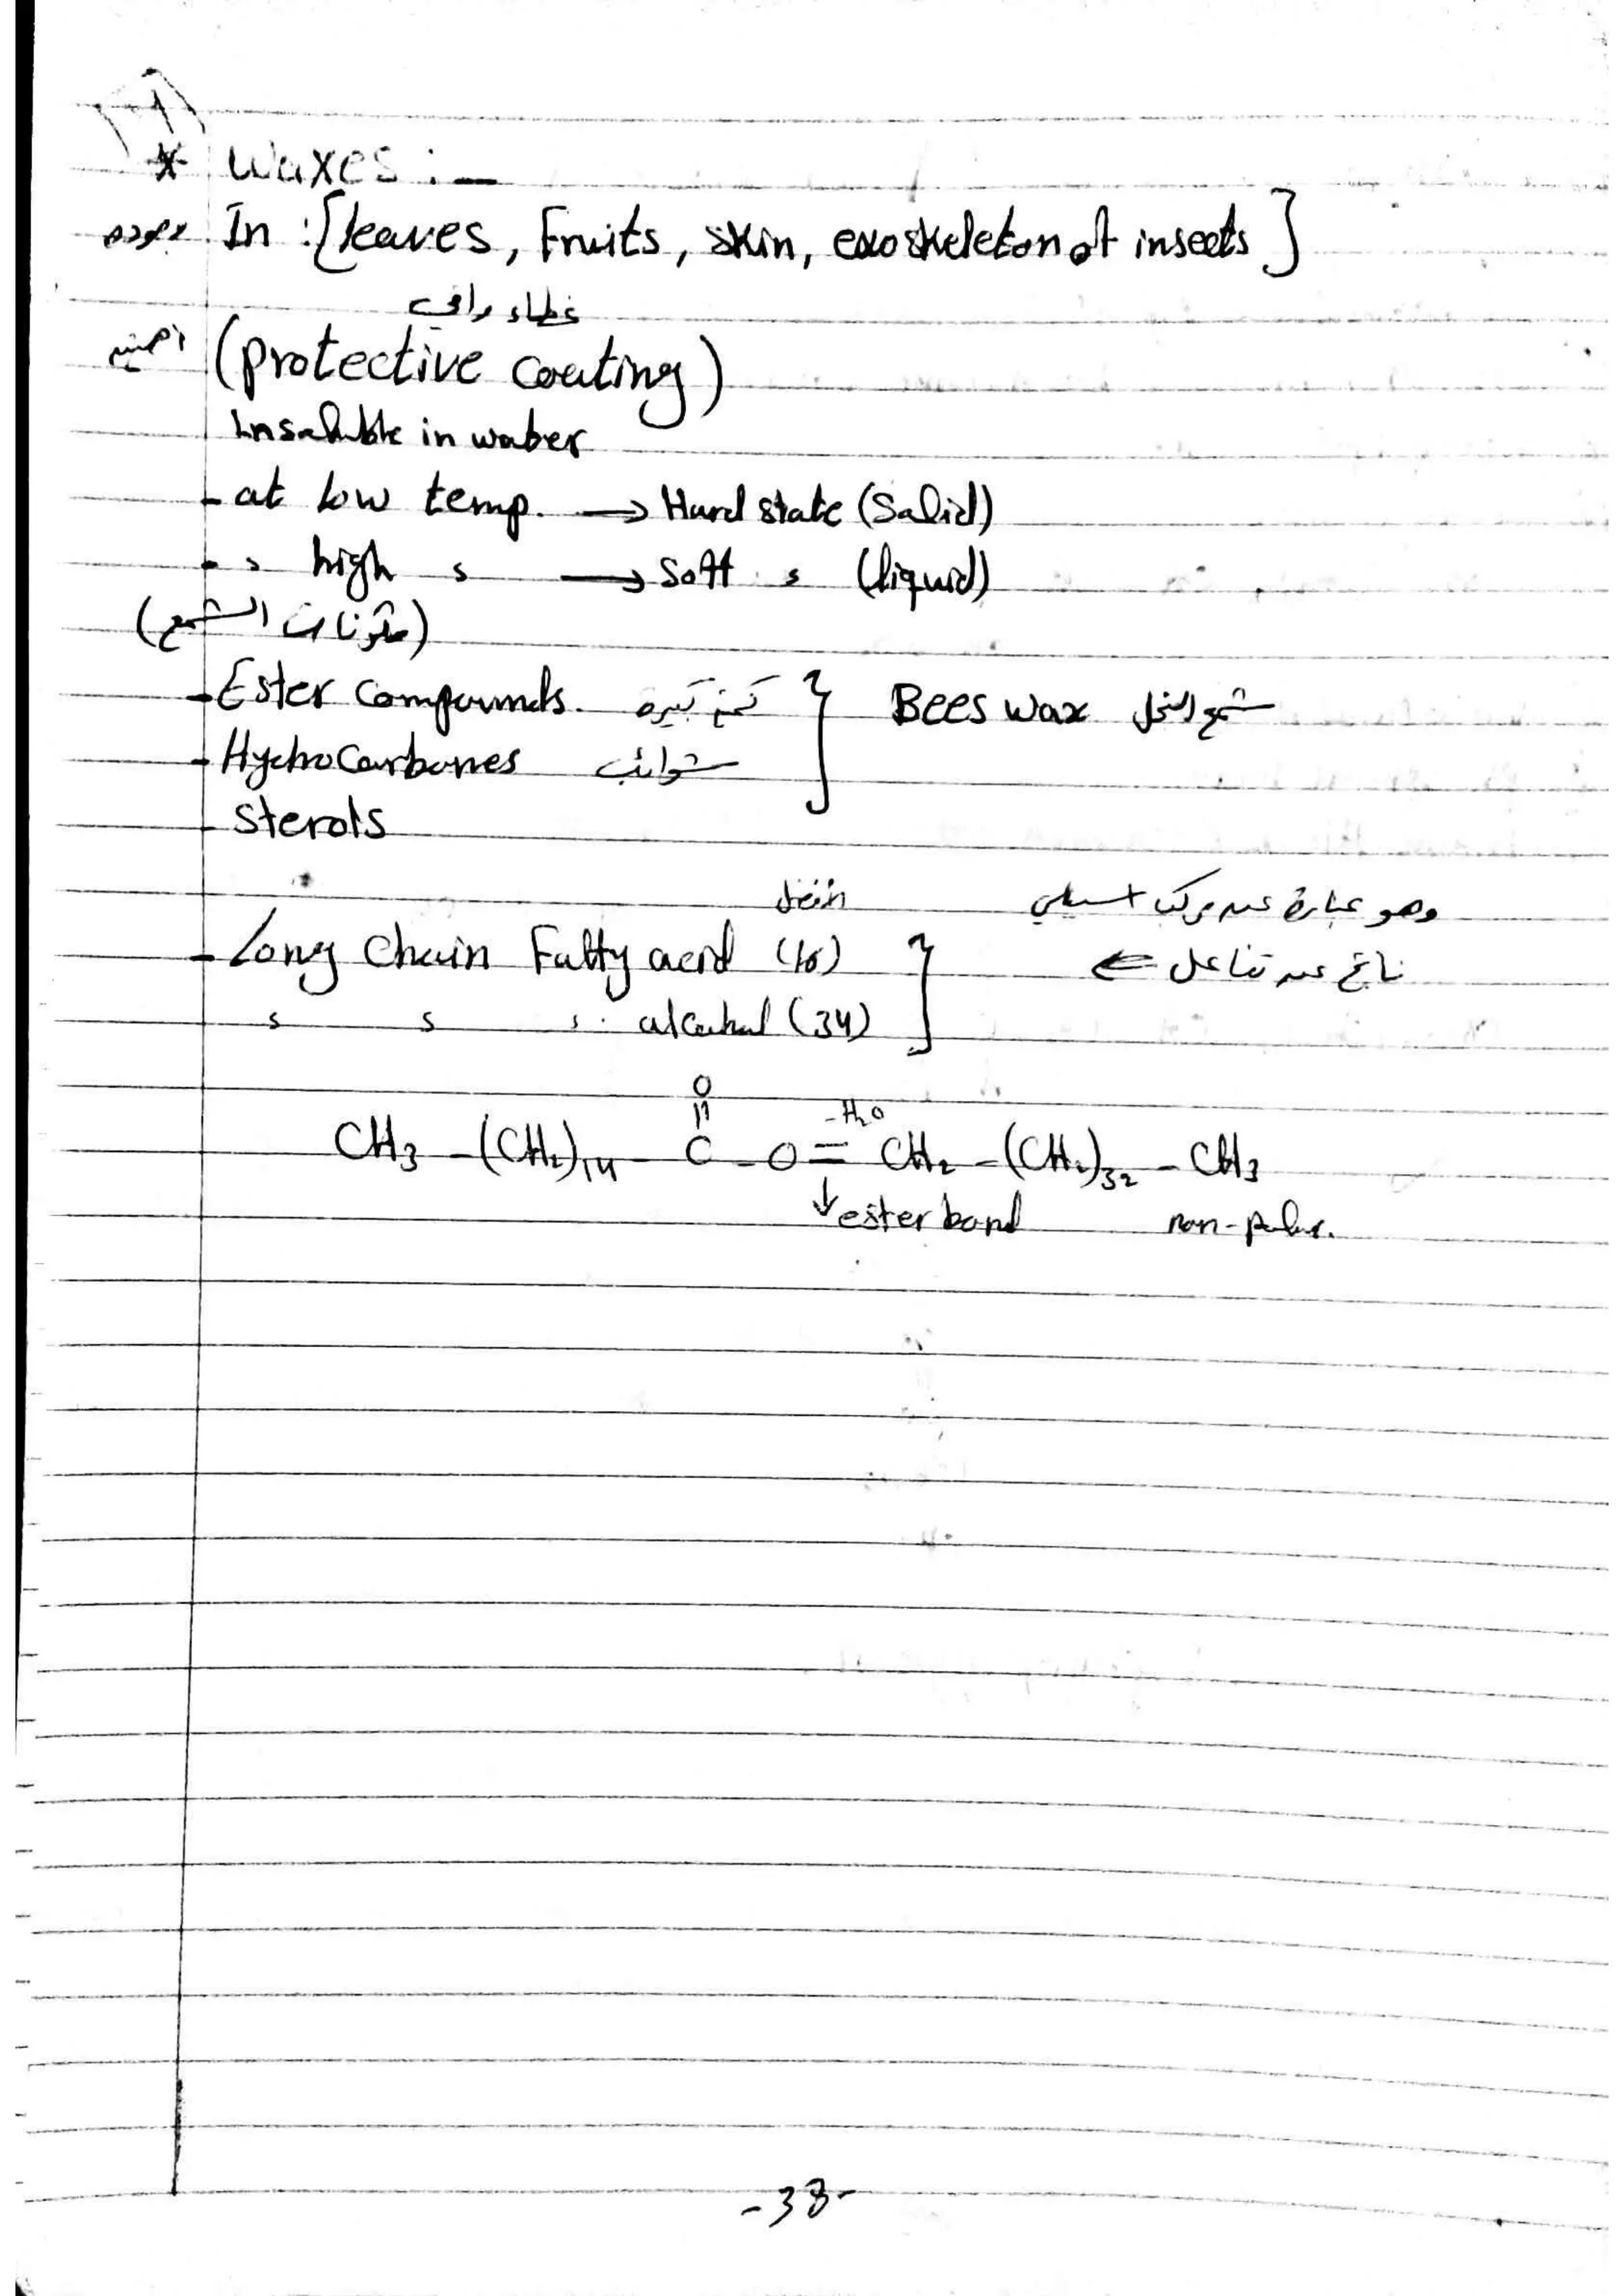 * Waxes :-
وجوده In : [leaves, Fruits, skin, exoskeleton of insects]
غطاء واقي
اهميته (protective coating)
Insoluble in water
- at low temp. → Hard state (Solid)
- " high " → Soft " (liquid)
(مكونات الشمع)
- Ester Compounds. كميه كبيره } Bees wax شمع النحل
- Hydrocarbones شوائب
- Sterols
وهو عبارة عن مركب استيلي
- Long Chain Fatty acid (16) } ناتج عن تفاعل ⇐
" " " alcohol (34)
O
CH3 - (CH2)14 - C - O = CH2 - (CH2)32 - CH3
-H2O
↓ ester bond non-polar.
-38-